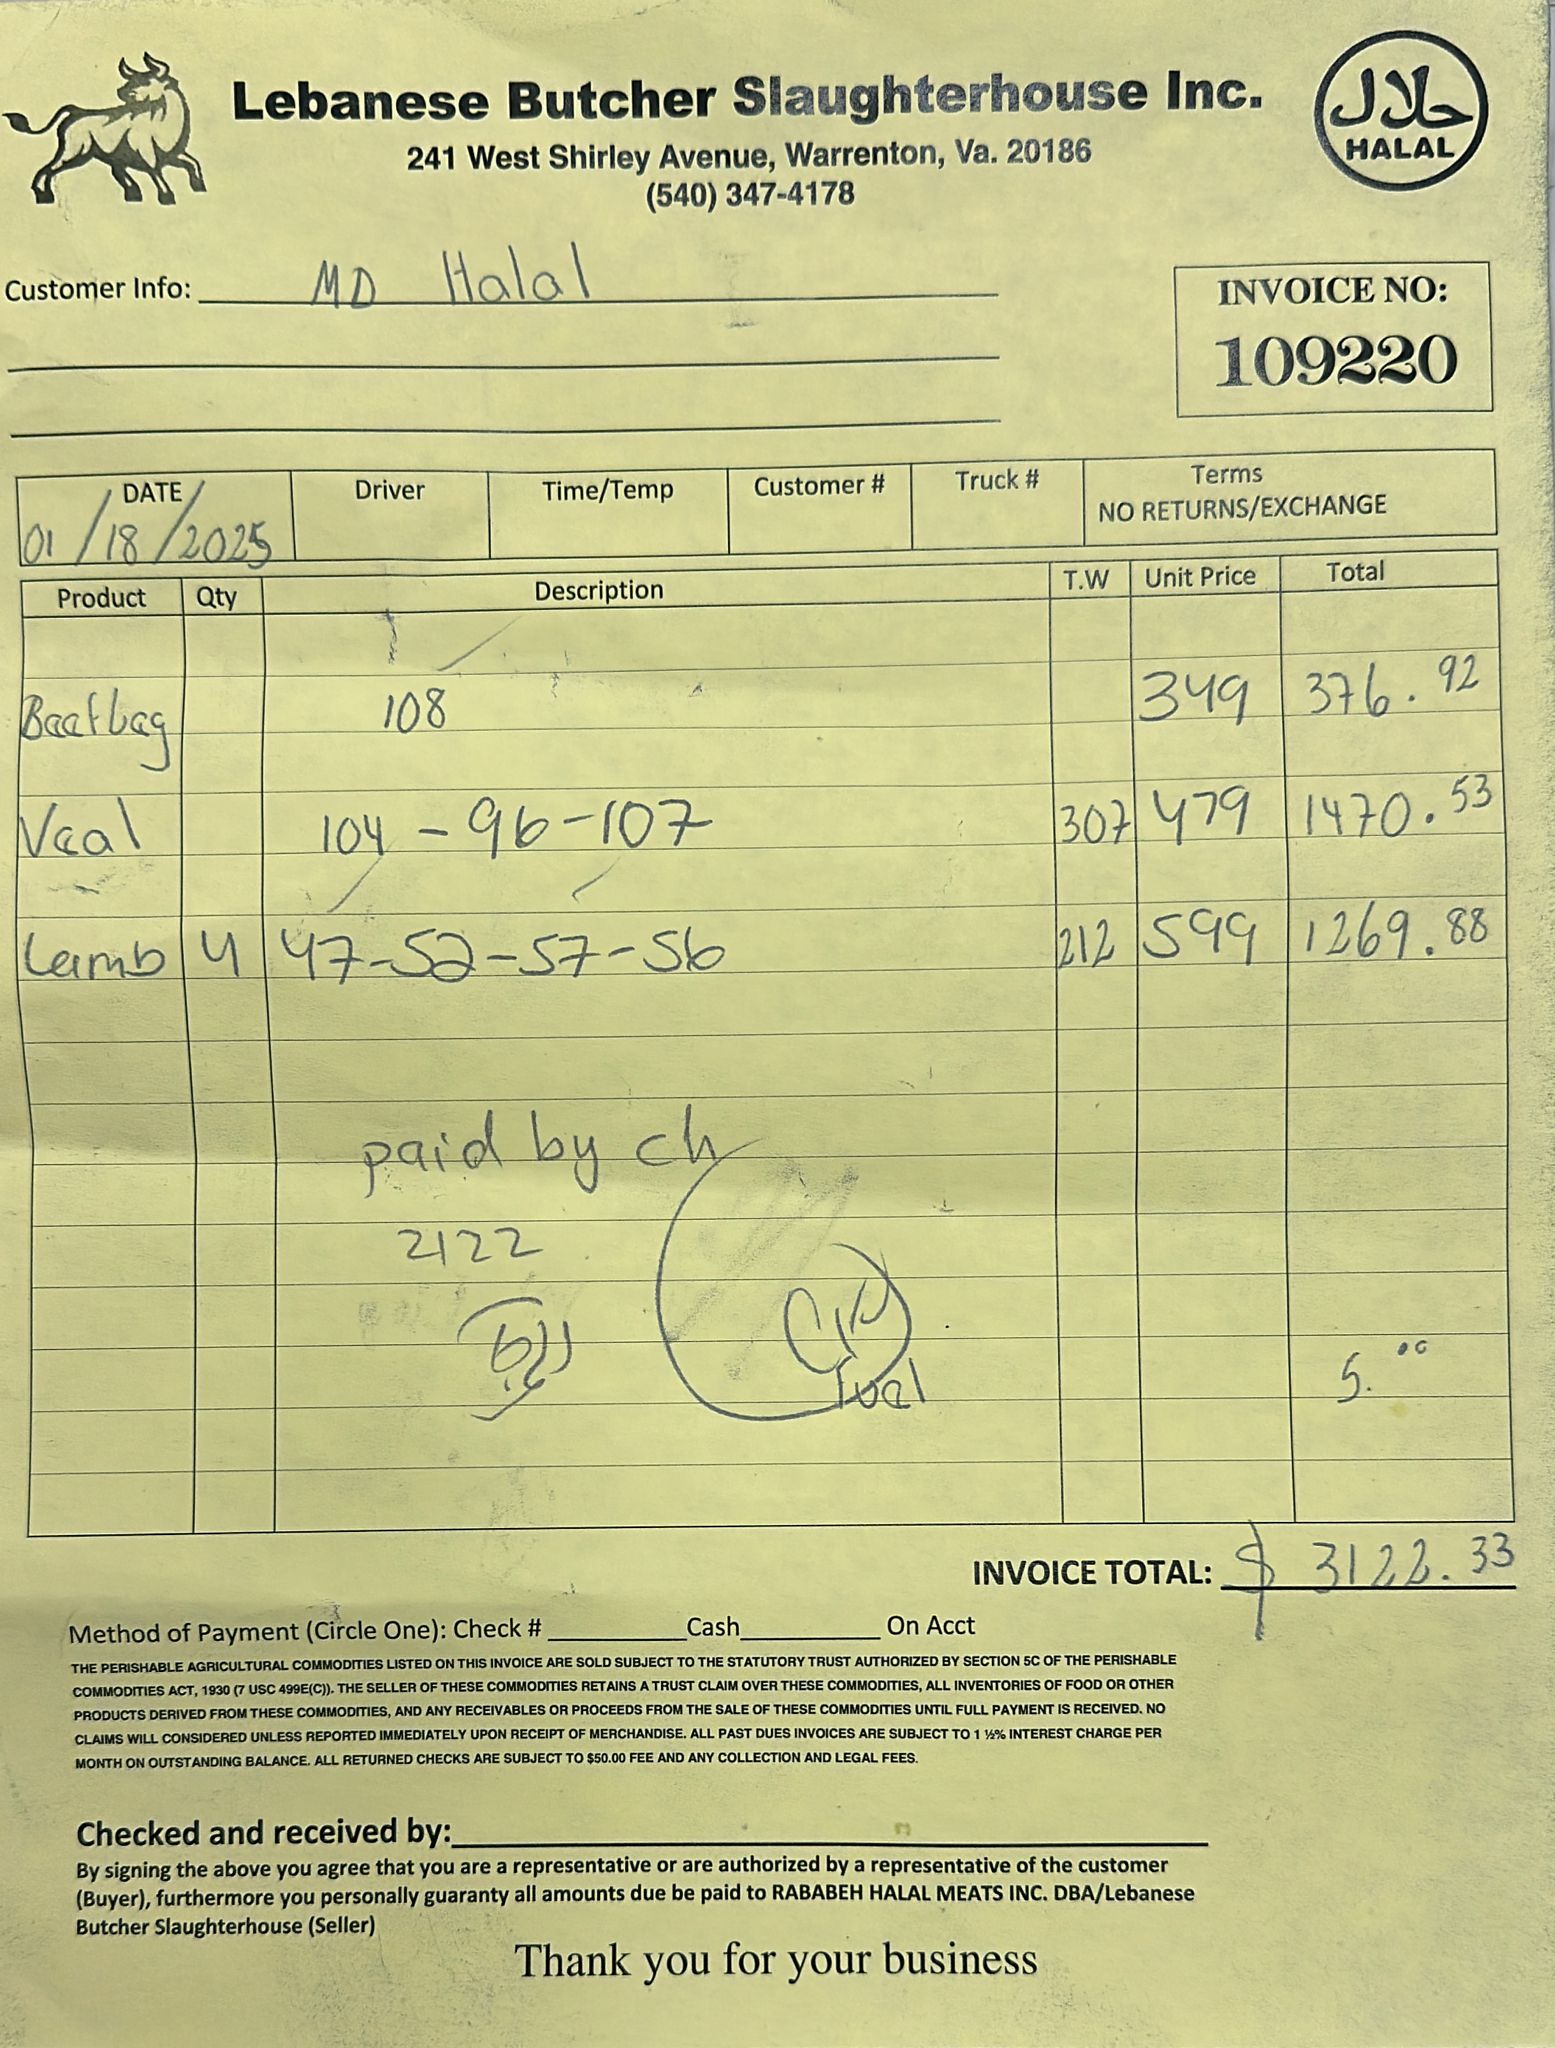 Lebanese Butcher Slaughterhouse Inc.
241 West Shirley Avenue, Warrenton, Va. 20186
(540) 347-4178
حلال
HALAL
Customer Info: MD Halal
INVOICE NO:
109220
DATE Driver Time/Temp Customer # Truck # Terms
NO RETURNS/EXCHANGE
01/18/2025
Product Qty Description T.W Unit Price Total
108 349 376.92
Veal 104-96-107 307 479 1470.53
Lamb 4 47-52-57-56 212 599 1269.88
paid by ch
2122
Fuel 5.00
INVOICE TOTAL: $ 3122.33
Method of Payment (Circle One): Check # Cash On Acct
THE PERISHABLE AGRICULTURAL COMMODITIES LISTED ON THIS INVOICE ARE SOLD SUBJECT TO THE STATUTORY TRUST AUTHORIZED BY SECTION 5C OF THE PERISHABLE
COMMODITIES ACT, 1930 (7 USC 499E(C)). THE SELLER OF THESE COMMODITIES RETAINS A TRUST CLAIM OVER THESE COMMODITIES, ALL INVENTORIES OF FOOD OR OTHER
PRODUCTS DERIVED FROM THESE COMMODITIES, AND ANY RECEIVABLES OR PROCEEDS FROM THE SALE OF THESE COMMODITIES UNTIL FULL PAYMENT IS RECEIVED. NO
CLAIMS WILL CONSIDERED UNLESS REPORTED IMMEDIATELY UPON RECEIPT OF MERCHANDISE. ALL PAST DUES INVOICES ARE SUBJECT TO 1 ½% INTEREST CHARGE PER
MONTH ON OUTSTANDING BALANCE. ALL RETURNED CHECKS ARE SUBJECT TO $50.00 FEE AND ANY COLLECTION AND LEGAL FEES.
Checked and received by:
By signing the above you agree that you are a representative or are authorized by a representative of the customer
(Buyer), furthermore you personally guaranty all amounts due be paid to RABABEH HALAL MEATS INC. DBA/Lebanese
Butcher Slaughterhouse (Seller)
Thank you for your business